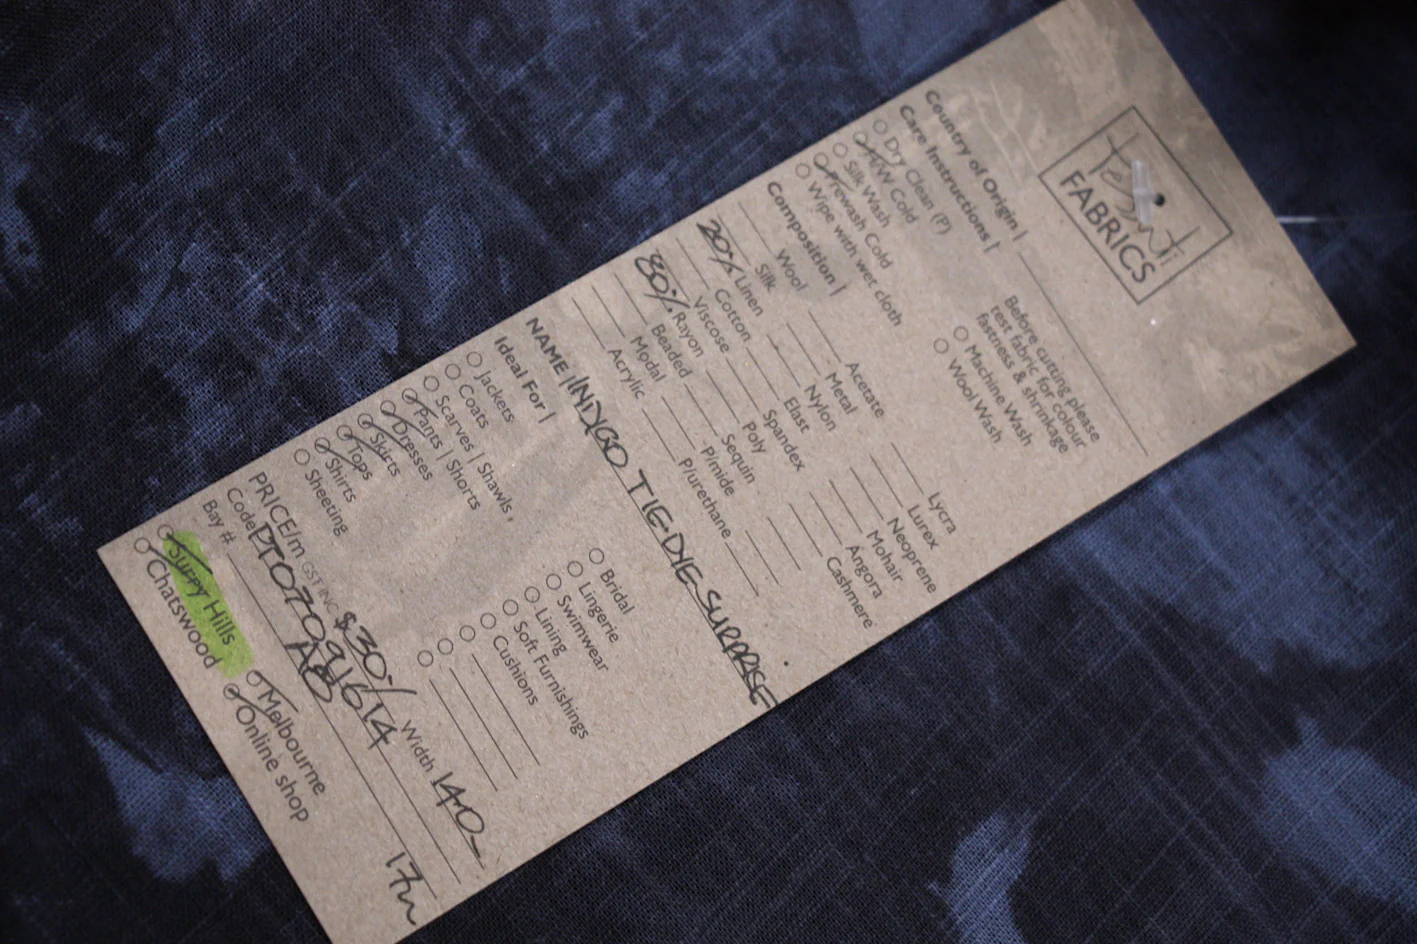 Tessuti
FABRICS
Country of Origin |
Care Instructions |
Dry Clean (P)
H/W Cold
Silk Wash
Prewash Cold
Wipe with wet cloth
Before cutting please
test fabric for colour
fastness & shrinkage
Machine Wash
Wool Wash
Composition |
Wool
Silk
20% Linen
Cotton
Viscose
80% Rayon
Beaded
Modal
Acrylic
Acetate
Metal
Nylon
Elast
Spandex
Poly
Sequin
P/mide
P/urethane
Lycra
Lurex
Neoprene
Mohair
Angora
Cashmere
NAME | INDYGO TIE-DYE SURPRISE
Ideal For |
Jackets
Coats
Scarves | Shawls,
Pants | Shorts
Dresses
Skirts
Tops
Shirts
Sheeting
Bridal
Lingerie
Swimwear
Lining
Soft Furnishings
Cushions
PRICE/m GST INC $30/ Width 140
Code
Bay # A8
17m
Surry Hills
Melbourne
Chatswood
Online shop